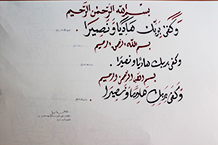 بسم الله الرحمن الرحیم
وکفی بربک هادیا و نصیرا
بسم الله الرحمن الرحیم
وکفی بربک هادیا و نصیرا
بسم الله الرحمن الرحیم
وکفی بربک هادیا و نصیرا